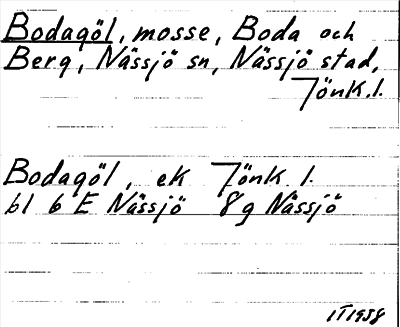 Bodagöl, mosse, Boda och
Berg, Nässjö sn, Nässjö stad,
Jönk.l.
Bodagöl, ek Jönk l.
bl 6 E Nässjö 8g Nässjö
IT1958